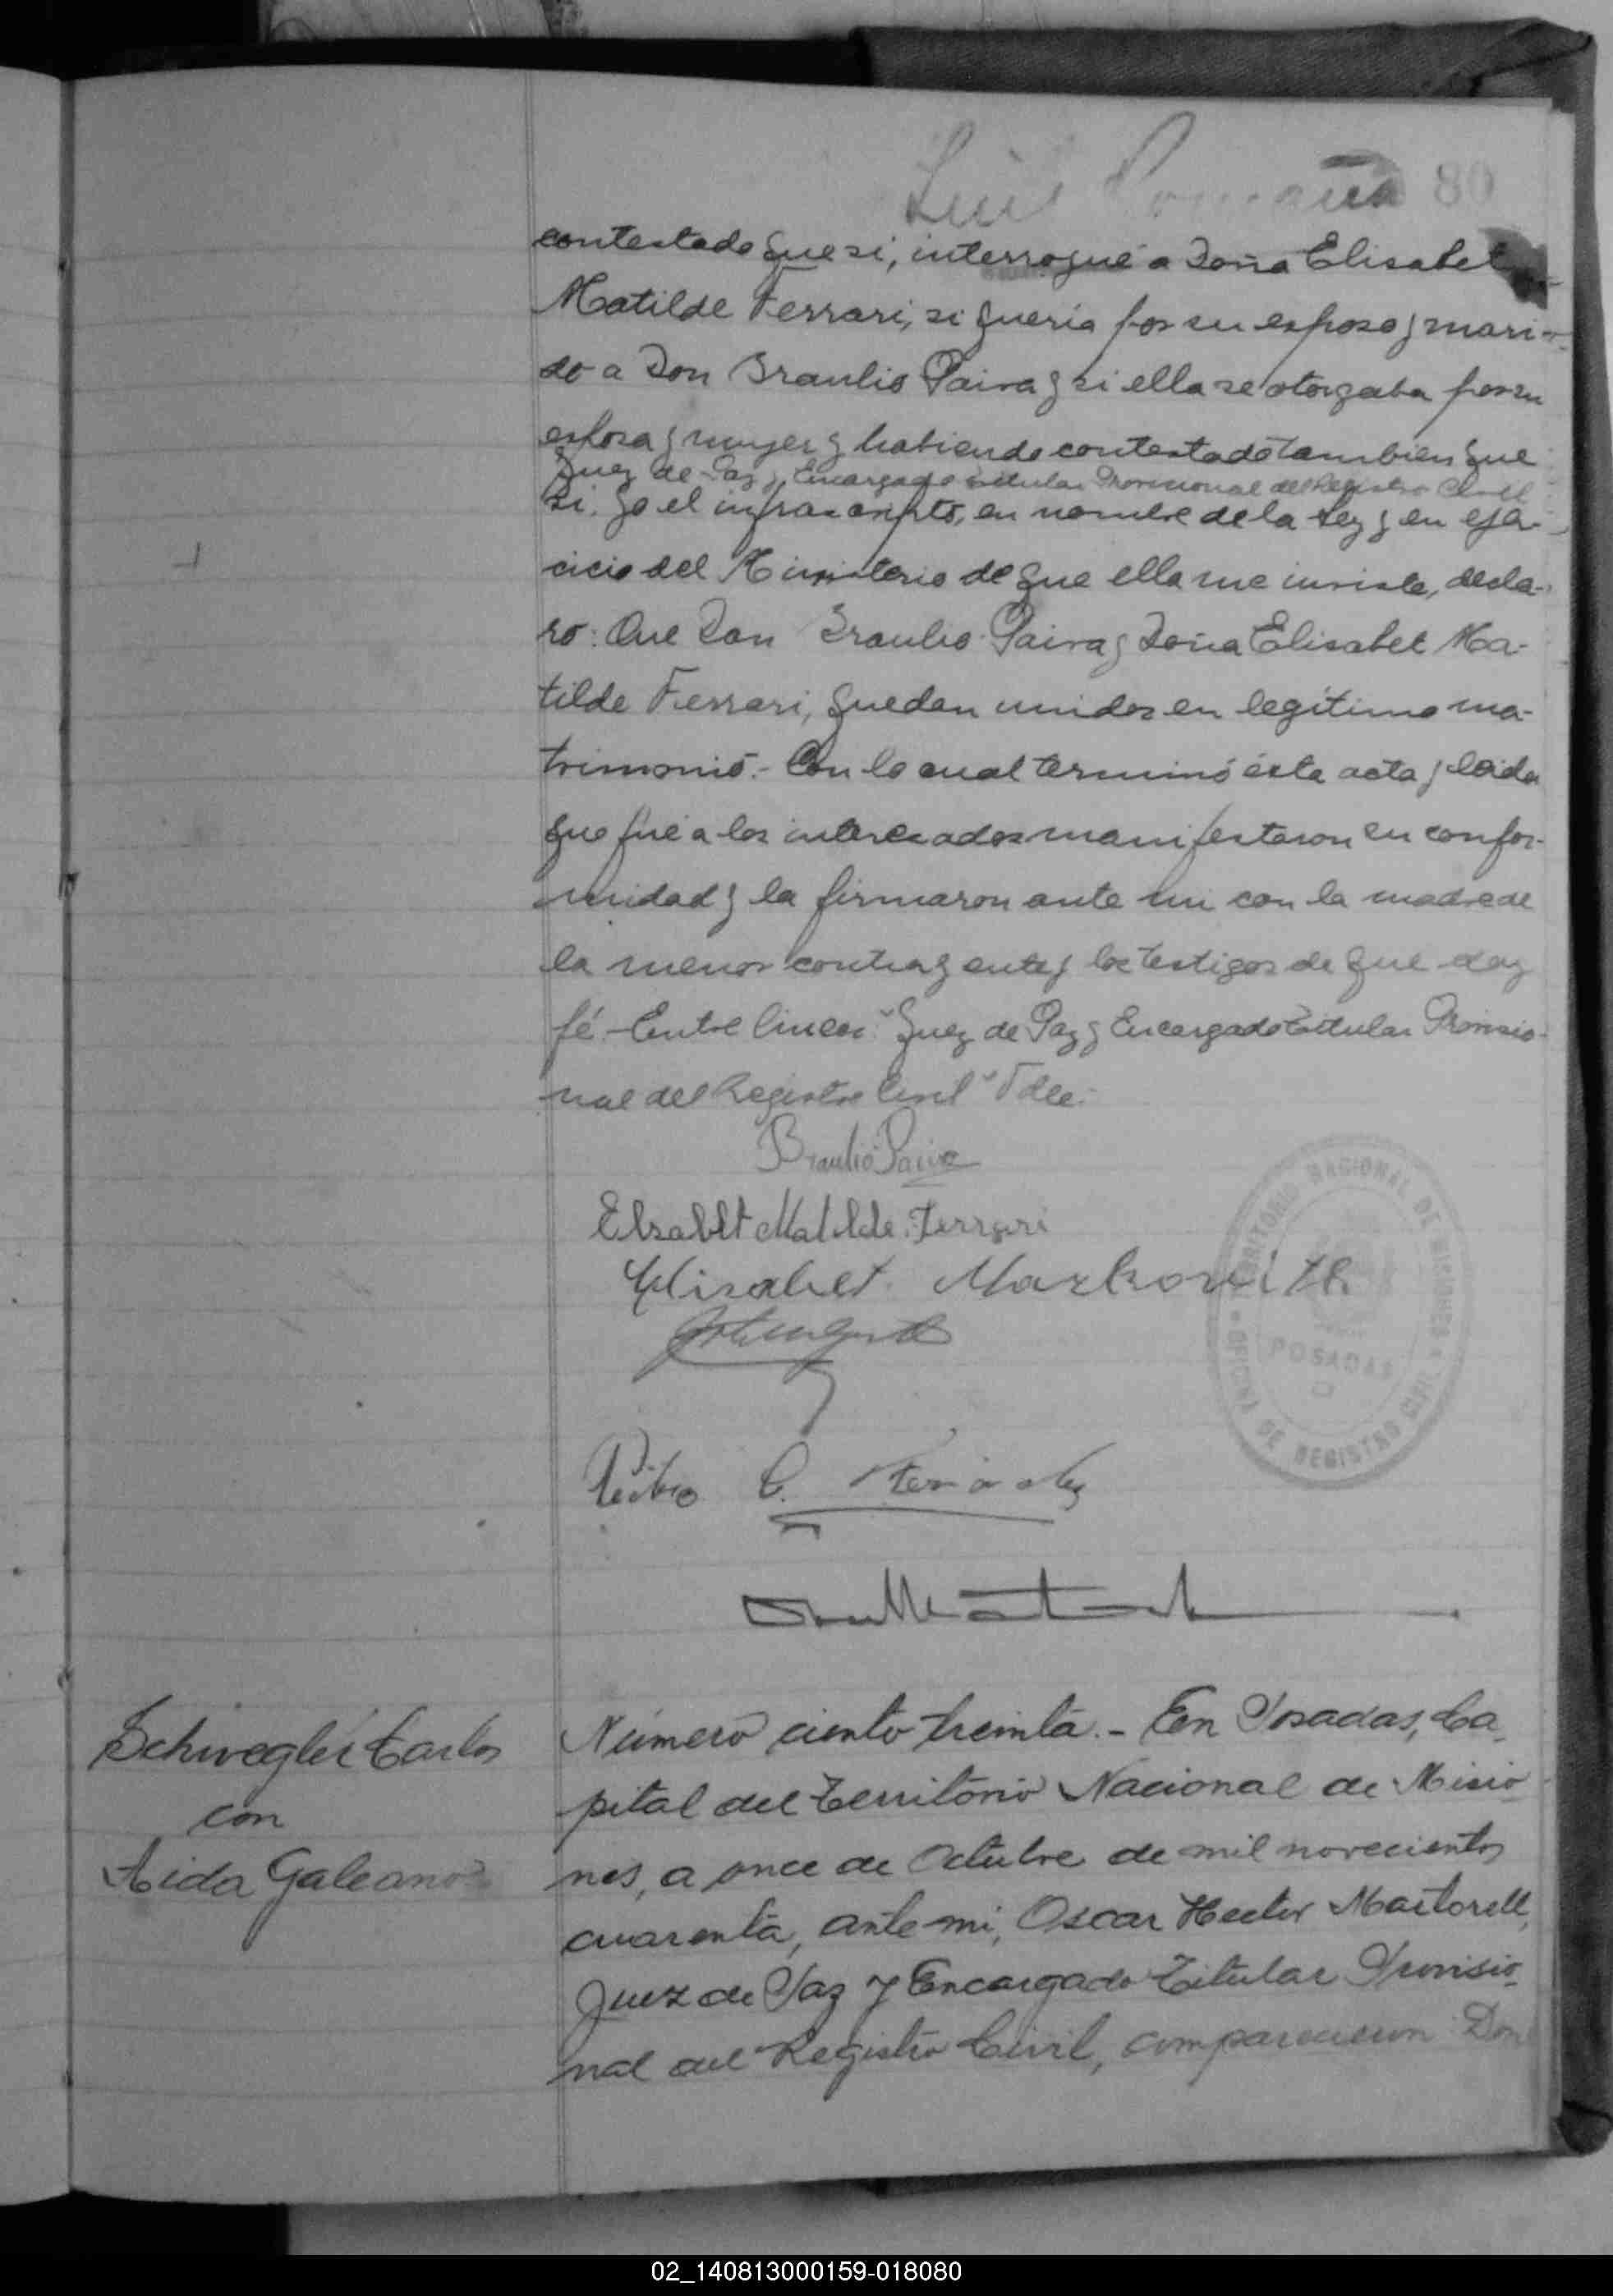 Luis 80
contestado que si, interrogué a Doña Elisabet
Matilde Ferrari, si queria por su esposo y mari-
do a Don Braulio Paiva y si ella se otorgaba por su
esposa y mujer y habiendo contestado tambien que
Juez de Paz y Encargado Titular Provisional del Registro Civil
si. Yo el infrascripto, en nombre de la Ley y en ejer-
cicio del Ministerio de que ella me inviste, decla-
ro: Que Don Braulio Paiva y Doña Elisabet Ma-
tilde Ferrari, quedan unidos en legítimo ma-
trimonio.- Con lo cual terminó ésta acta y leida
que fué a los interesados manifestaron su confor-
midad y la firmaron ante mi con la madre de
la menor contrayente y los testigos de que doy
fé.- Entre lineas: "Juez de Paz y Encargado Titular Provisio-
nal del Registro Civil" Vale.
Braulio Paiva
Elsabet Matilde Ferrari
Elisabet Markovith
TERRITORIO NACIONAL DE MISIONES
POSADAS
OFICINA DE REGISTRO CIVIL
C.
Schwegler Carlos
con
Aida Galeano
Número ciento treinta.- En Posadas, Ca-
pital del Territorio Nacional de Misio-
nes, a once de Octubre de mil novecientos
cuarenta, ante mi, Oscar Hector Martorell,
Juez de Paz y Encargado Titular Provisio-
nal del Registro Civil, comparecieron Don
02_140813000159-018080